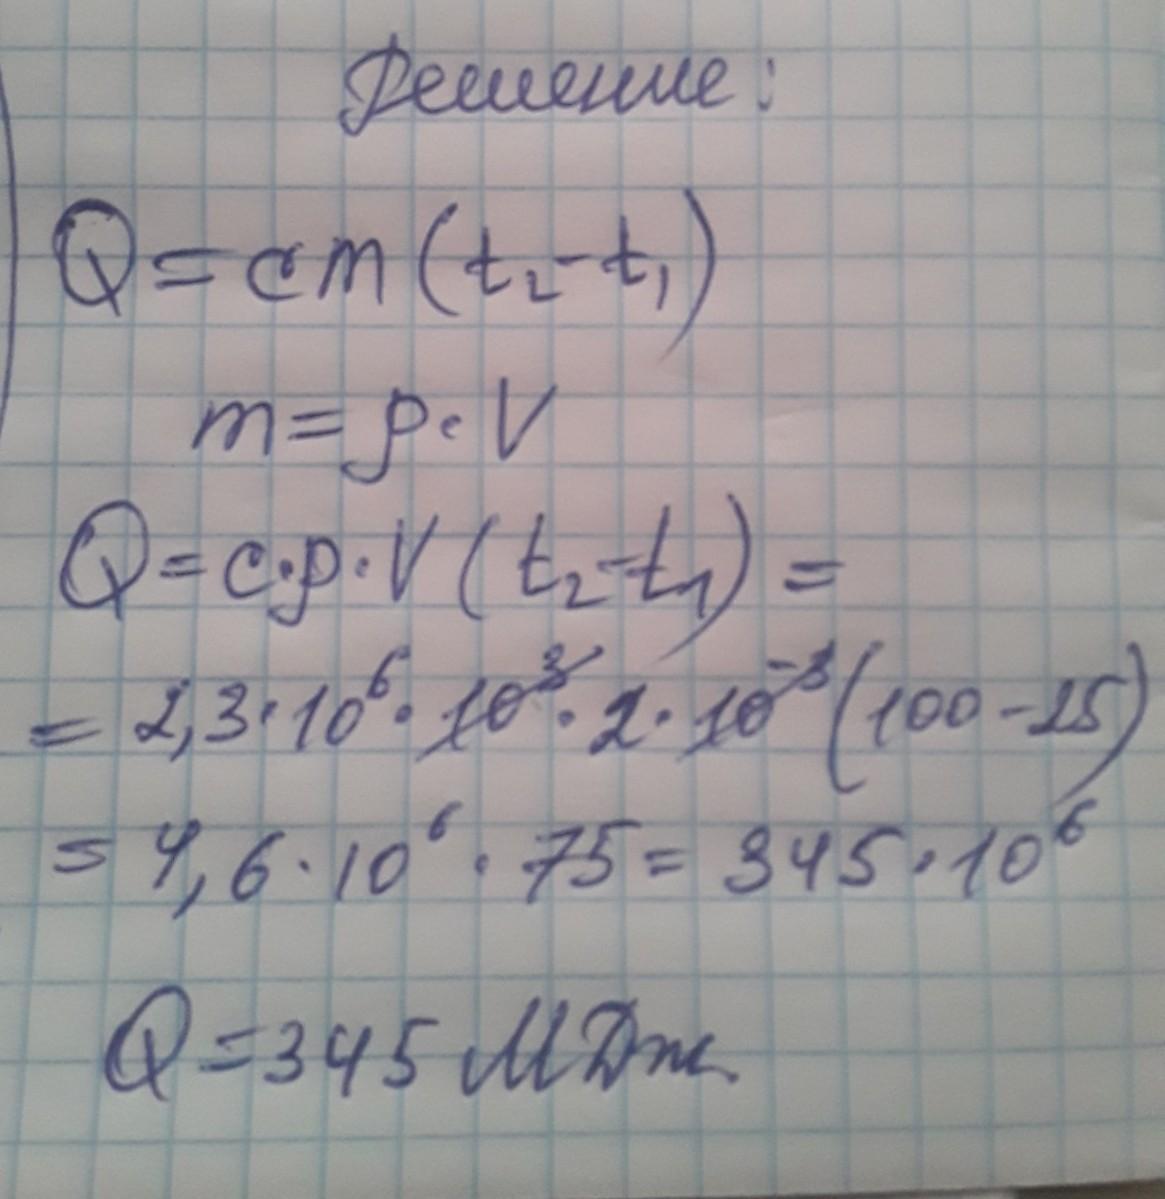 Решение:
Q = cm (t₂ - t₁)
m = ρ · V
Q = c · ρ · V (t₂ - t₁) =
= 2,3 · 10⁶ · 10³ · 2 · 10⁻³ (100 - 25)
= 4,6 · 10⁶ · 75 = 345 · 10⁶
Q = 345 МДж.